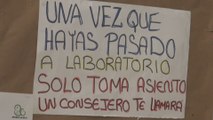 UNA VEZ QUE
HAYAS PASADO
A LABORATORIO
SOLO TOMA ASIENTO
UN CONSEJERO TE LLAMARA